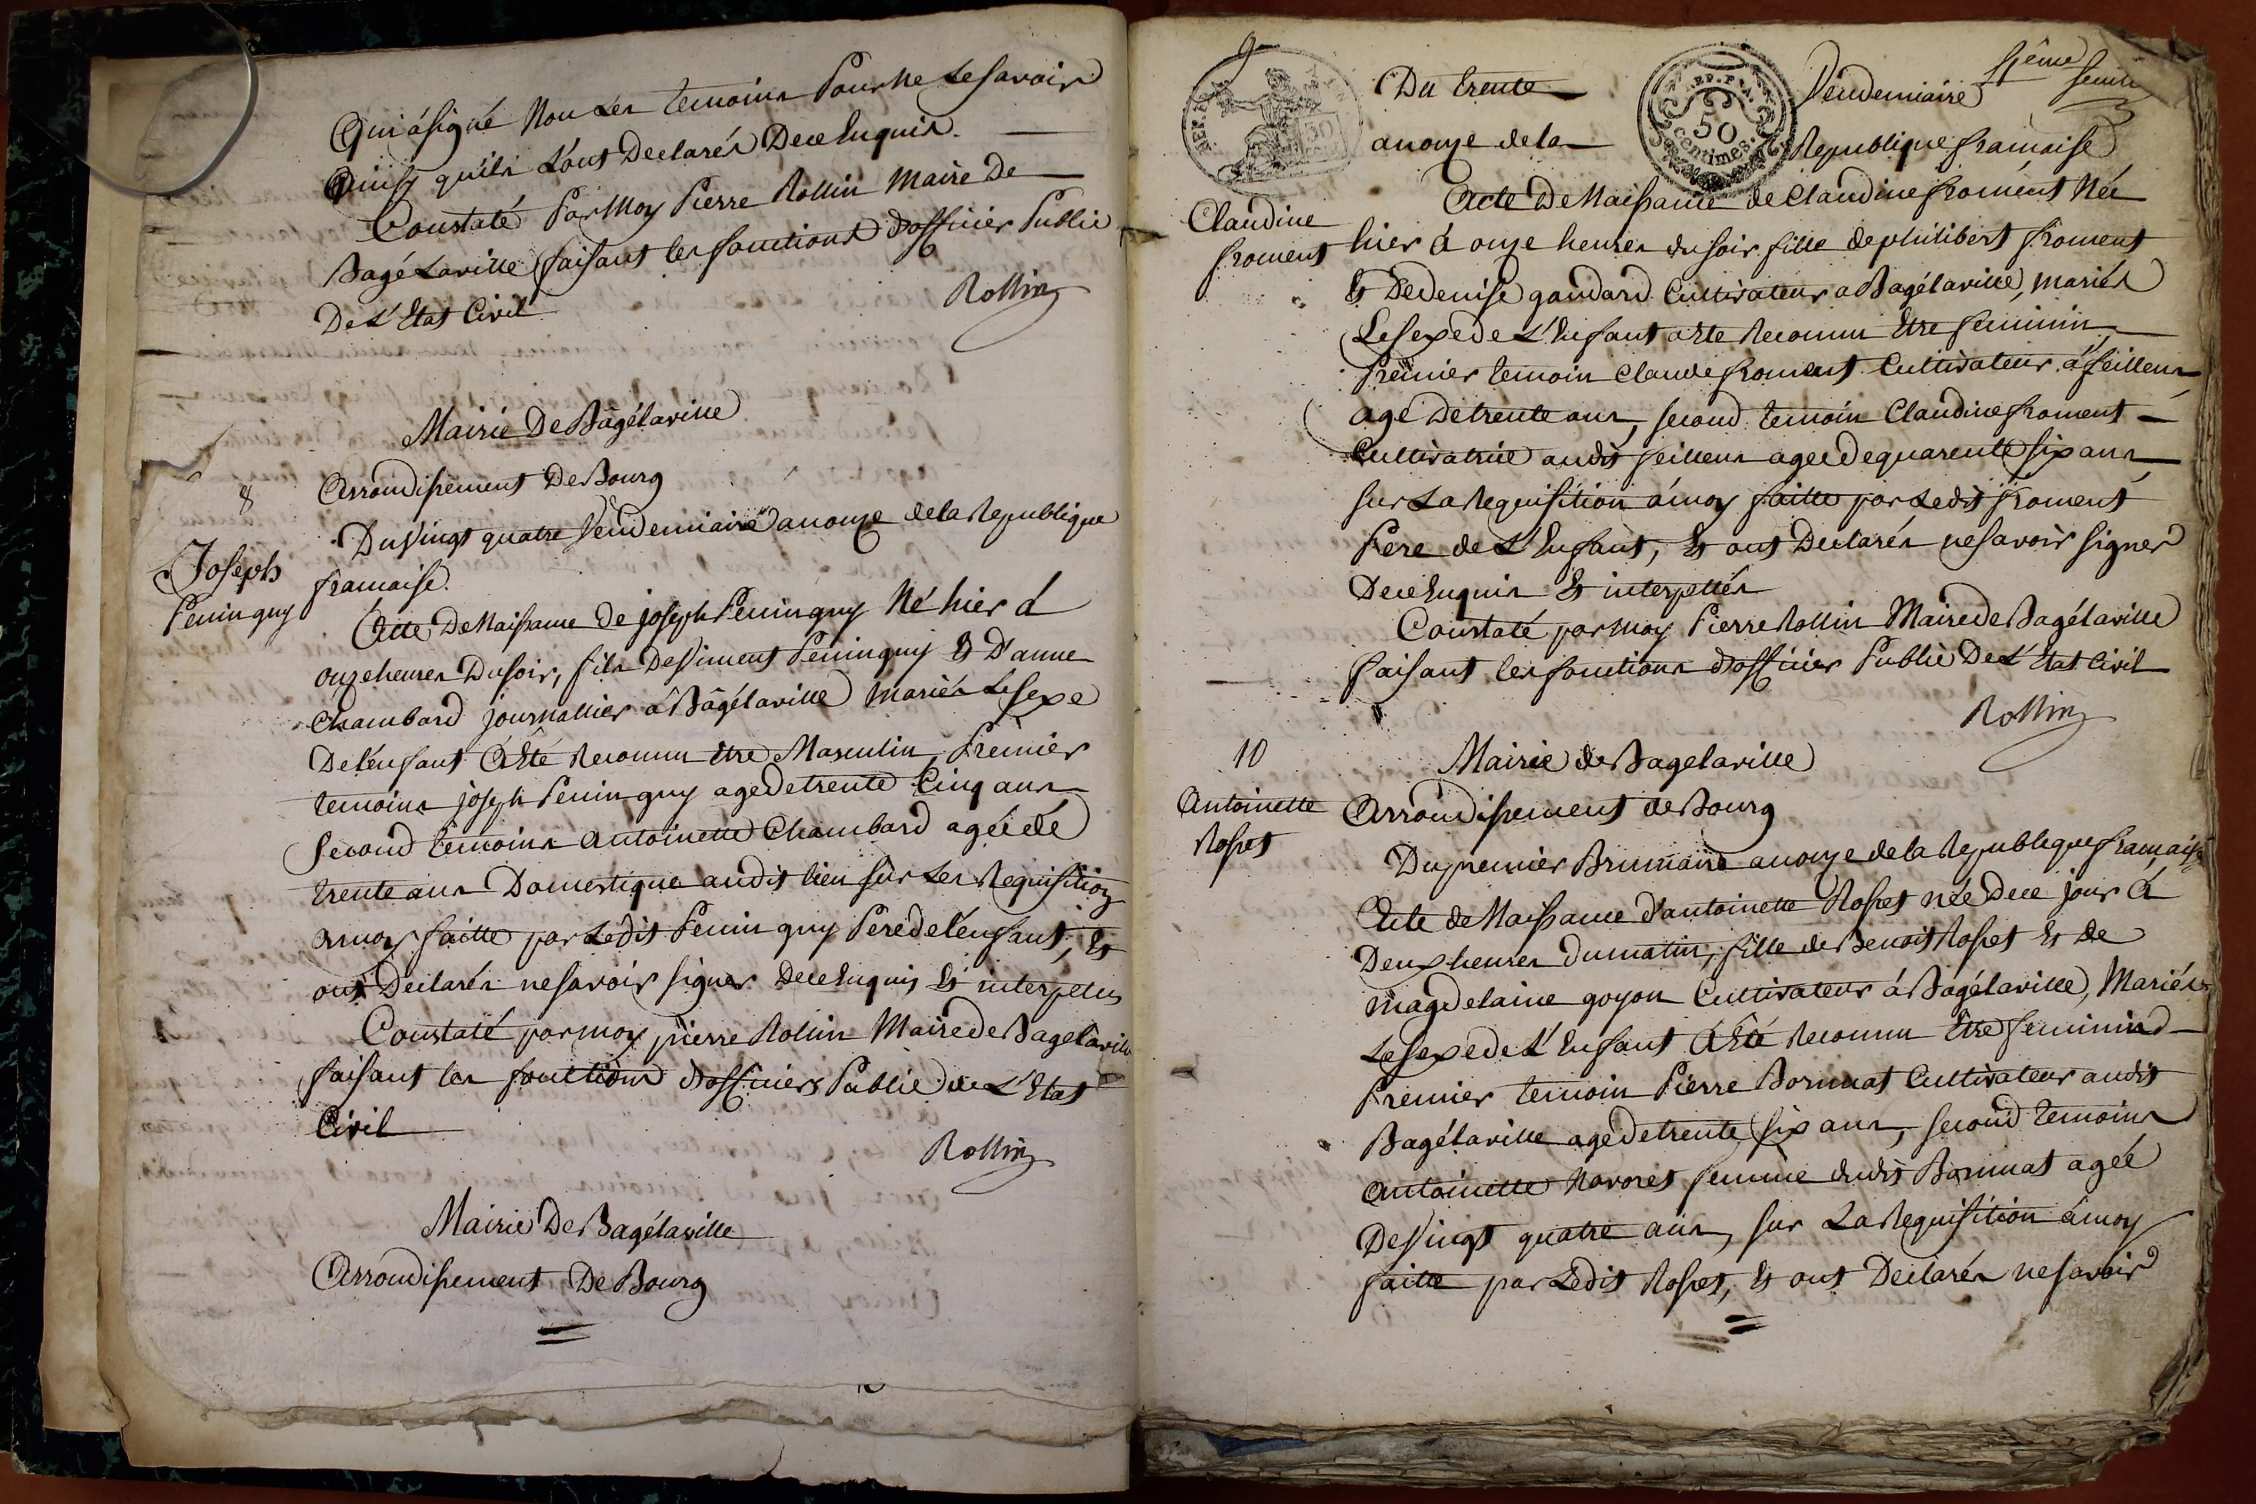 Qui á signé Non Les temoins Pour Ne Le Savoir
Ainsy qu'ils L'ont Declarés De ce Enquis.
Constaté Par Moy Pierre Rollin Maire De
Bagé Laville faisant les fonctions d'officier Public
De L'Etat Civil
Rollin
Mairie De Bâgélaville
8
Arrondissement De Bourg
Du Vingt quatre Vendemiaire an onze de la Republique
Joseph
Peninguy
francaise.
Acte De Naissance de joseph Peninguy Né hier á
onze heures Du soir, fils De Viment Peninguy Et D'anne
Chambard journallier á Bâgélaville mariés Le sexe
De l'enfant á Eté Reconnu être Masculin, Premier
temoins joseph Peninguy agé de trente Cinq ans
Second temoins antoinette Chambard agée de
trente ans Domestique audit lieu sur Les Requisition
a moy faitte par Ledit Peninguy Pere de l'enfant, Et
ont Declarés ne savoir signer De ce Enquis Et interpellés
Constaté par moy pierre Rollin Maire de Bagelaville
faisant les fonctions d'officiers Public de L'Etat
Civil
Rollin
Mairie De Bagélaville
Arrondissement De Bourg
9
REP. FRA.
50
centimes.
Du trente Vendemiaire
an onze de la Republique francaise
Claudine
froment
Acte De Naissance de Claudine froment Née
hier á onze heures du soir fille de philibert froment
Et De denise gandard Cultivateur a Bagélaville, mariés
Le sexe de L'Enfant a ete Reconnu Etre feminin,
Premier temoin Claude froment Cultivateur á feillens
agé De trente ans, second temoin Claudine froment
Cultivatrice audit feillens agée de quarente six ans
sur La Requisition á moy faitte par Ledit froment
Pere de L'Enfant, Et ont Declarés ne savoir signer
De ce Enquis Et interpellés
Constaté par moy Pierre Rollin Maire de Bagélaville
faisant les fonctions d'officier Public De L'Etat Civil
Rollin
10
Antoinette
Rosset
Mairie de Bagelaville
Arrondissement de Bourg
Du premier Brumaire an onze de la Republeque francaise
Acte de Naissance d'antoinette Rosset née De ce jour á
Deux heures du matin, fille de Benoit Rosset Et de
magdelaine goyon Cultivateur á Bagélaville, Mariés
Le sexe de L'Enfant á Eté Reconnu Etre feminin
Premier temoin Pierre Bornuat Cultivateur audit
Bagélaville agé de trente six ans, second temoins
Antoinette Navoret femme dudit Bornuat agée
De Vingt quatre ans, sur La Requisition á moy
faitte par Ledit Rosset, Et ont Declarés ne savoir